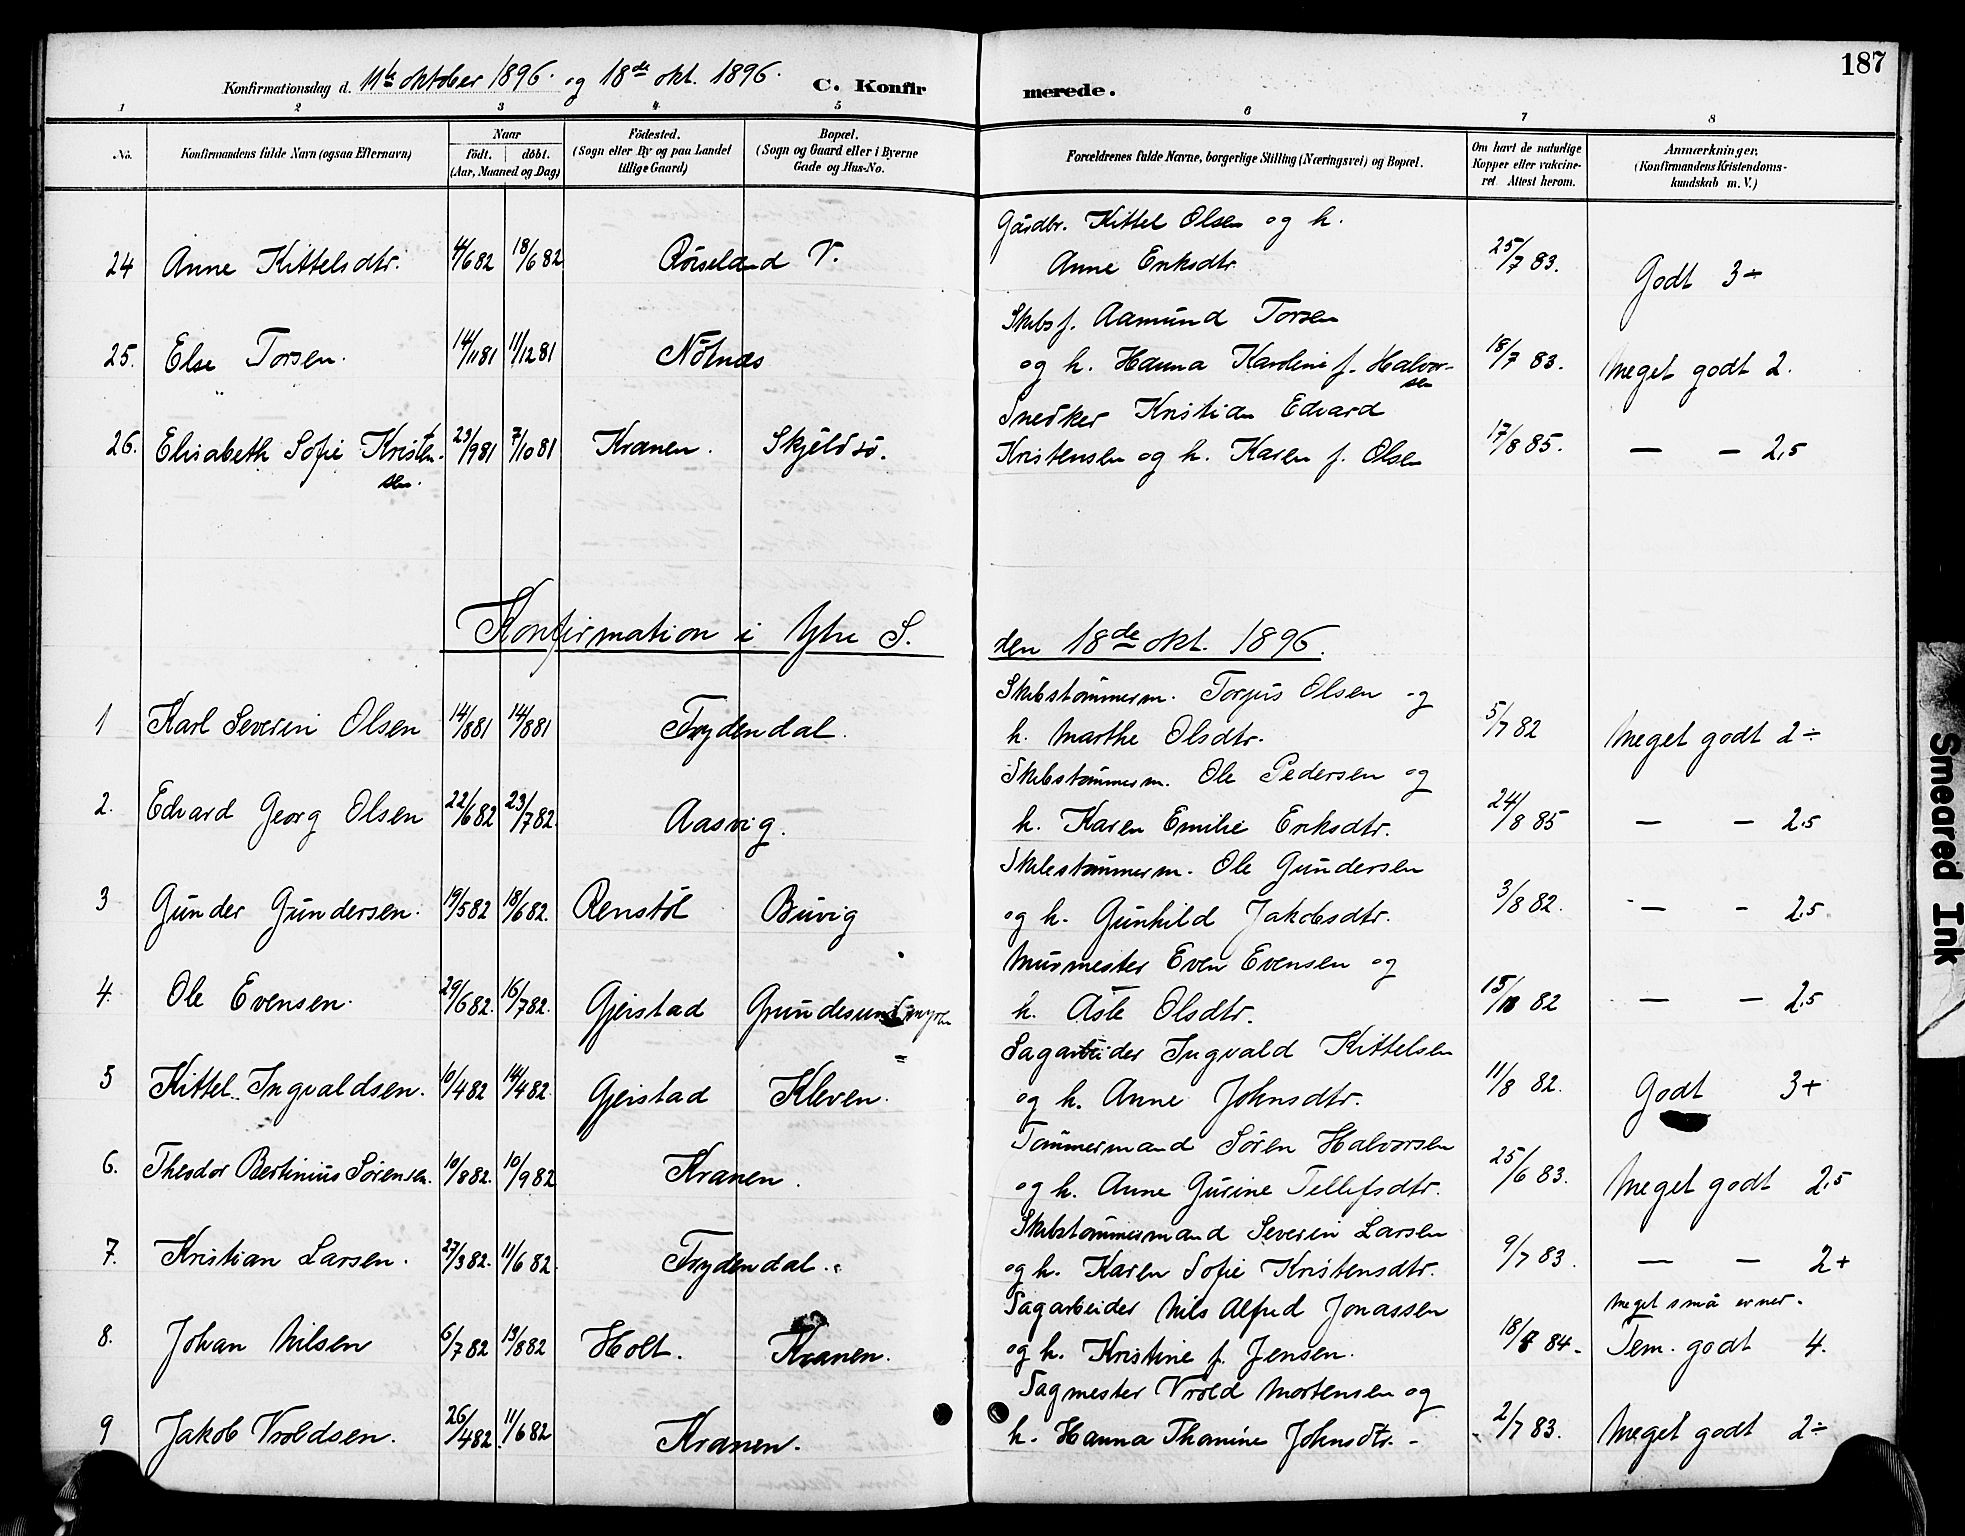 187
Konfirmationsdag d. 11te oktober 1896. og 18de okt. 1896. C. Konfirmerede.
1 2 3 4 5 6 7 8
No. Konfirmandens fulde Navn (ogsaa Efternavn) Naar født. døbt. (Aar, Maaned og Dag) Fødested. (Sogn eller By og paa Landet tillige Gaard) Bopæl. (Sogn og Gaard eller i Byerne Gade og Hus-No. Forældrenes fulde Navne, borgerlige Stilling (Næringsvei) og Bopæl. Om havt de naturlige Kopper eller vakcineret Attest herom. Anmærkninger, (Konfirmandens Kristendomskundskab m. V.)
Gårdbr. Kittel Olsen og h.
24 Anne Kittelsdtr. 4/6 82 18/6 82 Röiseland V. Anne Eriksdtr. 25/7 83. Godt 3÷
Skibsf. Aamund Torsen
25. Else Torsen. 14/11 81 11/12 81 Nötnæs og h. Hanna Karoline f. Halvorsen 18/7 83. Meget godt 2.
Snedker Kristian Edvard
26. Elisabeth Sofie Kristensen. 23/9 81 7/10 81 Kranen. Skjeldsö. Kristensen og h. Karen f. Olsen 17/8 85. — — 2,5
Konfirmation i Ytre S. den 18de okt. 1896.
Skibstömmerm. Torjus Olsen og
1 Karl Severin Olsen 14/8 81 14/8 81 Frydendal. h. Marthe Olsdtr. 5/7 82 Meget godt 2÷
Skibstömmerm. Ole Pedersen og
2. Edvard Georg Olsen 22/6 82 23/7 82. Aasvig. h. Karen Emilie Eriksdtr. 24/8 85 — — 2,5
Skibstömmerm. Ole Gundersen
3 Gunder Gundersen. 19/5 82 18/6 82. Renstöl Buvig og h. Gunhild Jakobsdtr. 3/8 82. — — 2,5
Murmester Even Evensen og
4. Ole Evensen. 29/6 82. 16/7 82. Gjerstad Grundesundmyren h. Åste Olsdtr. 15/10 82 — — 2,5
Sagarbeider Ingvald Kittelsen
5 Kittel Ingvaldsen. 10/4 82 14/4 82 Gjerstad Kleven. og h. Anne Johnsdtr. 11/8 82. Godt 3+
Tömmermand Sören Halvorsen
6. Theodor Bertinius Sörensen. 10/8 82. 10/9 82 Kranen. og h. Anne Gurine Tellefsdtr. 25/6 83. Meget godt 2,5
Skibstömmermand Severin Larsen
7. Kristian Larsen. 27/3 82. 11/6 82. Frydendal. og h. Karen Sofie Kristensdtr. 9/7 83. — — 2+
Sagarbeider Nils Alfred Jonassen Meget små evner.
8. Johan Nilsen 6/7 82 13/8 82 Holt. Kranen. og h. Kristine f. Jensen. 18/8 84. Tem. godt 4.
Sagmester Vrold Mortensen og
9 Jakob Vroldsen. 26/4 82 11/6 82 Kranen. h. Hanna Thomine Johnsdtr. 2/7 83. Meget godt 2÷
Smeared Ink